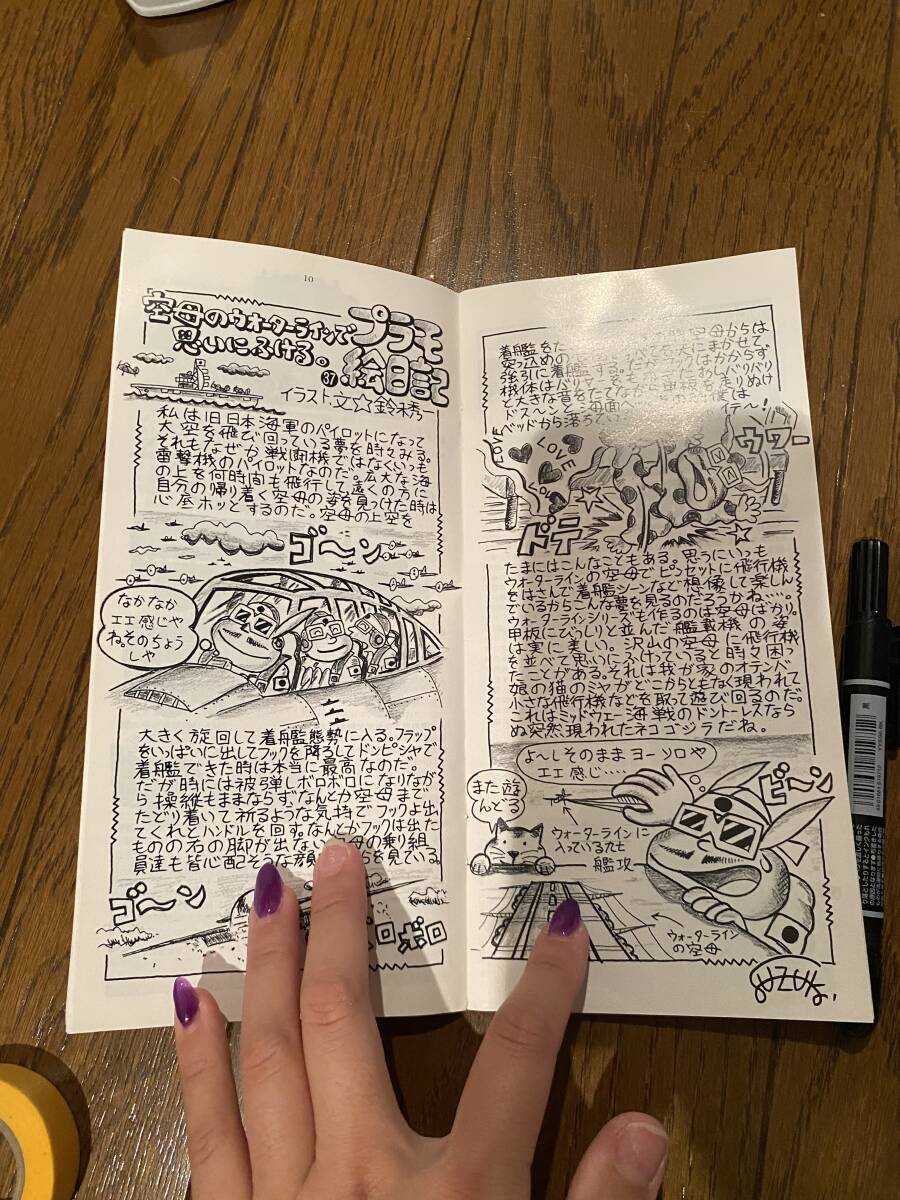 10
空母のウォーターラインで
思いにふける。
プラモ
絵日記
37
イラスト文☆鈴木秀一
私は旧日本海軍のパイロットになって
大空を飛び回っている夢を時々みる。
それもなぜか戦闘機ではなくいつも
雷撃機のパイロットなのだ。広大な海
の上を何時間も飛行して遠くの方に
自分の帰り着く空母の姿を見つけた時は
心底ホッとするのだ。空母の上空を
ゴ〜ン
なかなか
エエ感じや
ね。そのちょうし
しや
大きく旋回して着艦態勢に入る。フラップ
をいっぱいに出してフックを降ろしてドンピシャで
着艦できた時は本当に最高なのだ。
だが時には被弾しボロボロになりなが
ら操縦もままならず、なんとか空母まで
たどり着いて祈るような気持でフックよ出
てくれとハンドルを回す。なんとかフックは出た
ものの右の脚が出ない。母の乗り組
員達も皆心配そうな顔 らを見ている。
ゴ〜ン
ロボロ
空母からは
着艦をた まかせて
突っ込め
強引に着艦する。 はかからず
機体はバリヤーを バリバリ
と大きな音をたてな 甲板を走りぬけ
ドス〜ンと 僕は
ベッドから落ちてい イテ〜!
LOVE
LOVE
Love
ウワー
ドテ
たまにはこんなこともある。思うにいつも
ウォーターラインの空母でピンセットに飛行機
をはさんで着艦シーンなど想像して楽しん
でいるからこんな夢を見るのだろうかね‥‥。
ウォーターラインシリーズも作るのは空母ばかり。
甲板にびっしりと並んだ艦載機の姿
は実に美しい。沢山の空母に飛行機
を並べて思いにふけっていると時々困っ
たことがある。それは我が家のオテンバ
娘の猫のミヤがどこからともなく現われて
小さな飛行機などを取って遊び回るのだ。
これはミッドウェー海戦のドントーレスなら
ぬ突然現われたネコゴジラだね。
よ〜しそのままヨーソロや
エエ感じ‥‥
ビ〜ン
また遊
んどる
ウォーターラインに
入っている九七
艦攻
ウォーターライン
の空母
SUZUki.